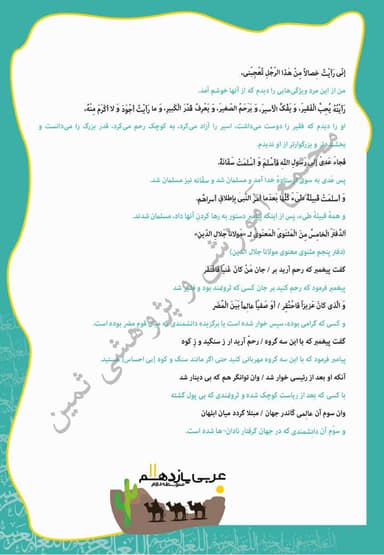 إنّی رَأیتُ خِصالاً مِنْ هٰذَا الرَّجُلِ تُعجِبُنی،
من از این مرد ویژگی‌هایی را دیدم که از آنها خوشم آمد.
رَأَیْتُهُ یُحِبُّ الْفَقیرَ، وَ یَفُکُّ الْأَسیرَ، وَ یَرْحَمُ الصَّغیرَ، وَ یَعْرِفُ قَدْرَ الْکَبیرِ، وَ ما رَأَیْتُ أَجْوَدَ وَ لا أَکْرَمَ مِنْهُ،
او را دیدم که فقیر را دوست می‌داشت، اسیر را آزاد می‌کرد، به کوچک رحم می‌کرد، قدر بزرگ را می‌دانست و
بخشنده‌تر و بزرگوارتر از او ندیدم.
فَجاءَ عَدیٌّ إلی رَسولِ اللهِ فَأَسْلَمَ وَ أَسْلَمَتْ سَفّانَةُ.
پس عدی به سوی فرستادۀ خدا آمد و مسلمان شد و سفّانه نیز مسلمان شد.
وَ أَسْلَمَتْ قَبیلَةُ طَیِّء کُلُّها بَعدَما أَمَرَ النَّبی بِإطلاقِ أَسراهُم.
و همۀ قبیلۀ طیّء، پس از اینکه پیامبر دستور به رها کردن آنها داد، مسلمان شدند.
اَلدَّفتَرُ الْخامِسُ مِنَ الْمَثنَویِّ الْمَعنَویِّ لـ «مَولانا جَلالِ الدّینِ»
(دفتر پنجم مثنوی معنوی مولانا جلال الدین)
گفت پیغمبر که رحم آرید بر / جان مَنْ کانَ غَنیّاً فَافْتَقَر
پیغمبر فرمود که رحم کنید بر جان کسی که ثروتمند بود و فقیر شد
وَ الَّذی کانَ عَزیزاً فَاحْتُقِر / أَوْ صَفیّاً عالِماً بَیْنَ الْمُضَر
و کسی که گرامی بوده، سپس خوار شده است یا برگزیده دانشمندی که میان قوم مضر بوده است.
گفت پیغمبر که با این سه گروه / رحم آرید ار ز سنگید و ز کوه
پیامبر فرمود که با این سه گروه مهربانی کنید حتی اگر مانند سنگ و کوه (بی احساس) هستید.
آنکه او بعد از رئیسی خوار شد / وان توانگر هم که بی دینار شد
با کسی که بعد از ریاست کوچک شده و ثروتمندی که بی پول گشته
وان سوم آن عالِمی کاندر جهان / مبتلا گردد میان ابلهان
و سوّم آن دانشمندی که در جهان گرفتار نادان‌ها شده است.
مجتمع آموزشی و پژوهشی ثمین
عربی یازدهم